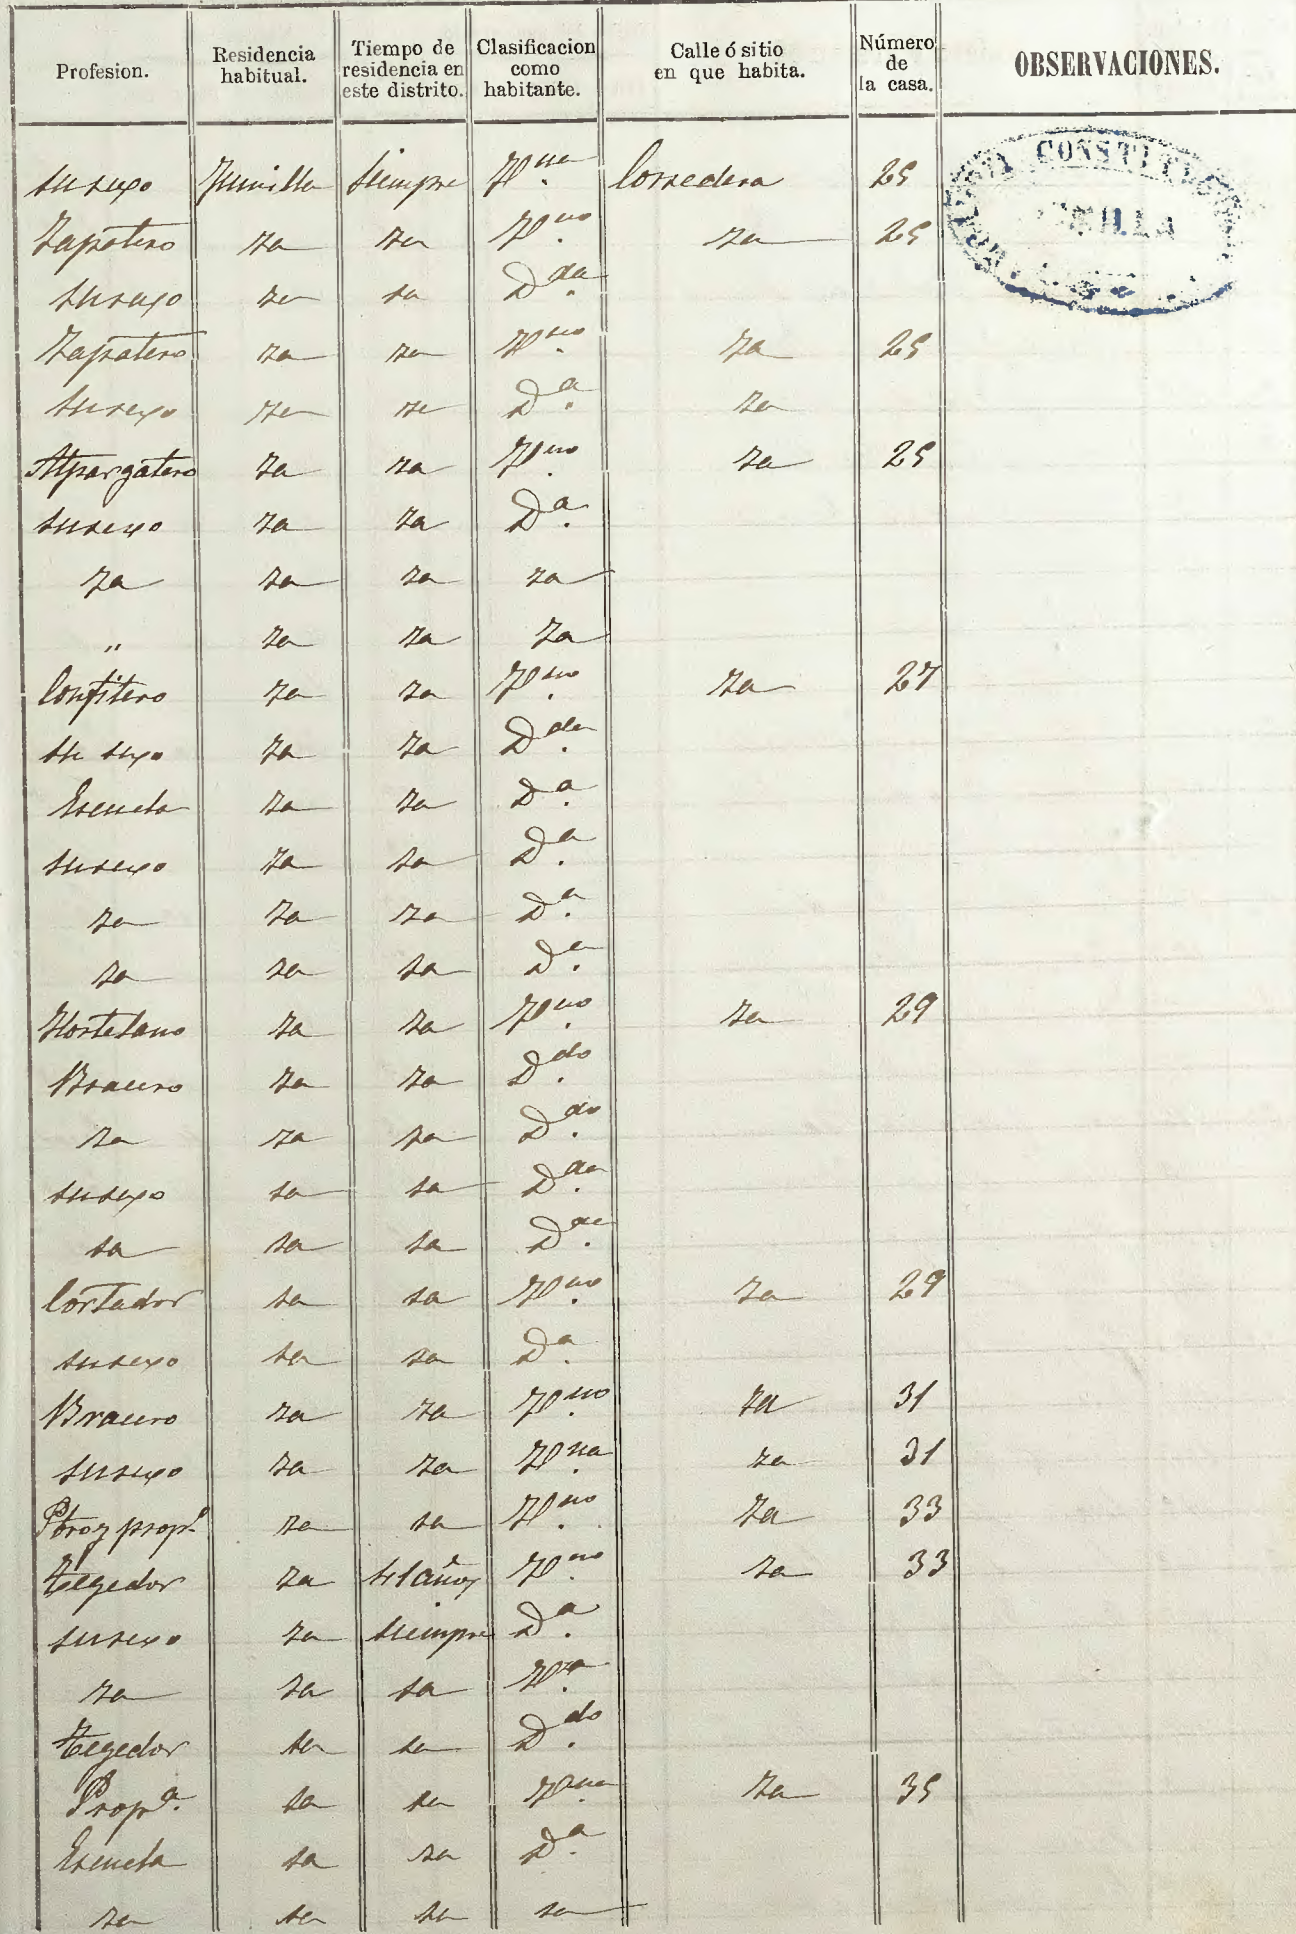 Profesion. Residencia habitual. Tiempo de residencia en este distrito. Clasificacion como habitante. Calle ó sitio en que habita. Número de la casa. OBSERVACIONES.
CONSTI
su sexo Jumilla siempre Vna. Corredera 25
Zapatero za za Vno. za 25
su sexo za za Dda.
Zapatero za za Vno. za 25
su sexo za za Da. za
Alpargatero za za Vno. za 25
su sexo za za Da.
za za za za
" za za za
Confitero za za Vno. za 27
su sexo za za Dda.
Escuela za za Da.
su sexo za za Da.
za za za Da.
za za za Da.
Hortelano za za Vno. za 29
Bracero za za Ddo.
za za za Ddo.
su sexo za za Dda.
za za za Dda.
Cortador za za Vno. za 29
su sexo za za Da.
Bracero za za Vno. za 31
su sexo za za Vna. za 31
Pbro y propo. za za Vno. za 33
tegedor za 41 años Vno. za 33
su sexo za siempre Da.
za za za Va.
tegedor za za Ddo.
Propa. za za Vna. za 35
Escuela za za Da.
za za za za